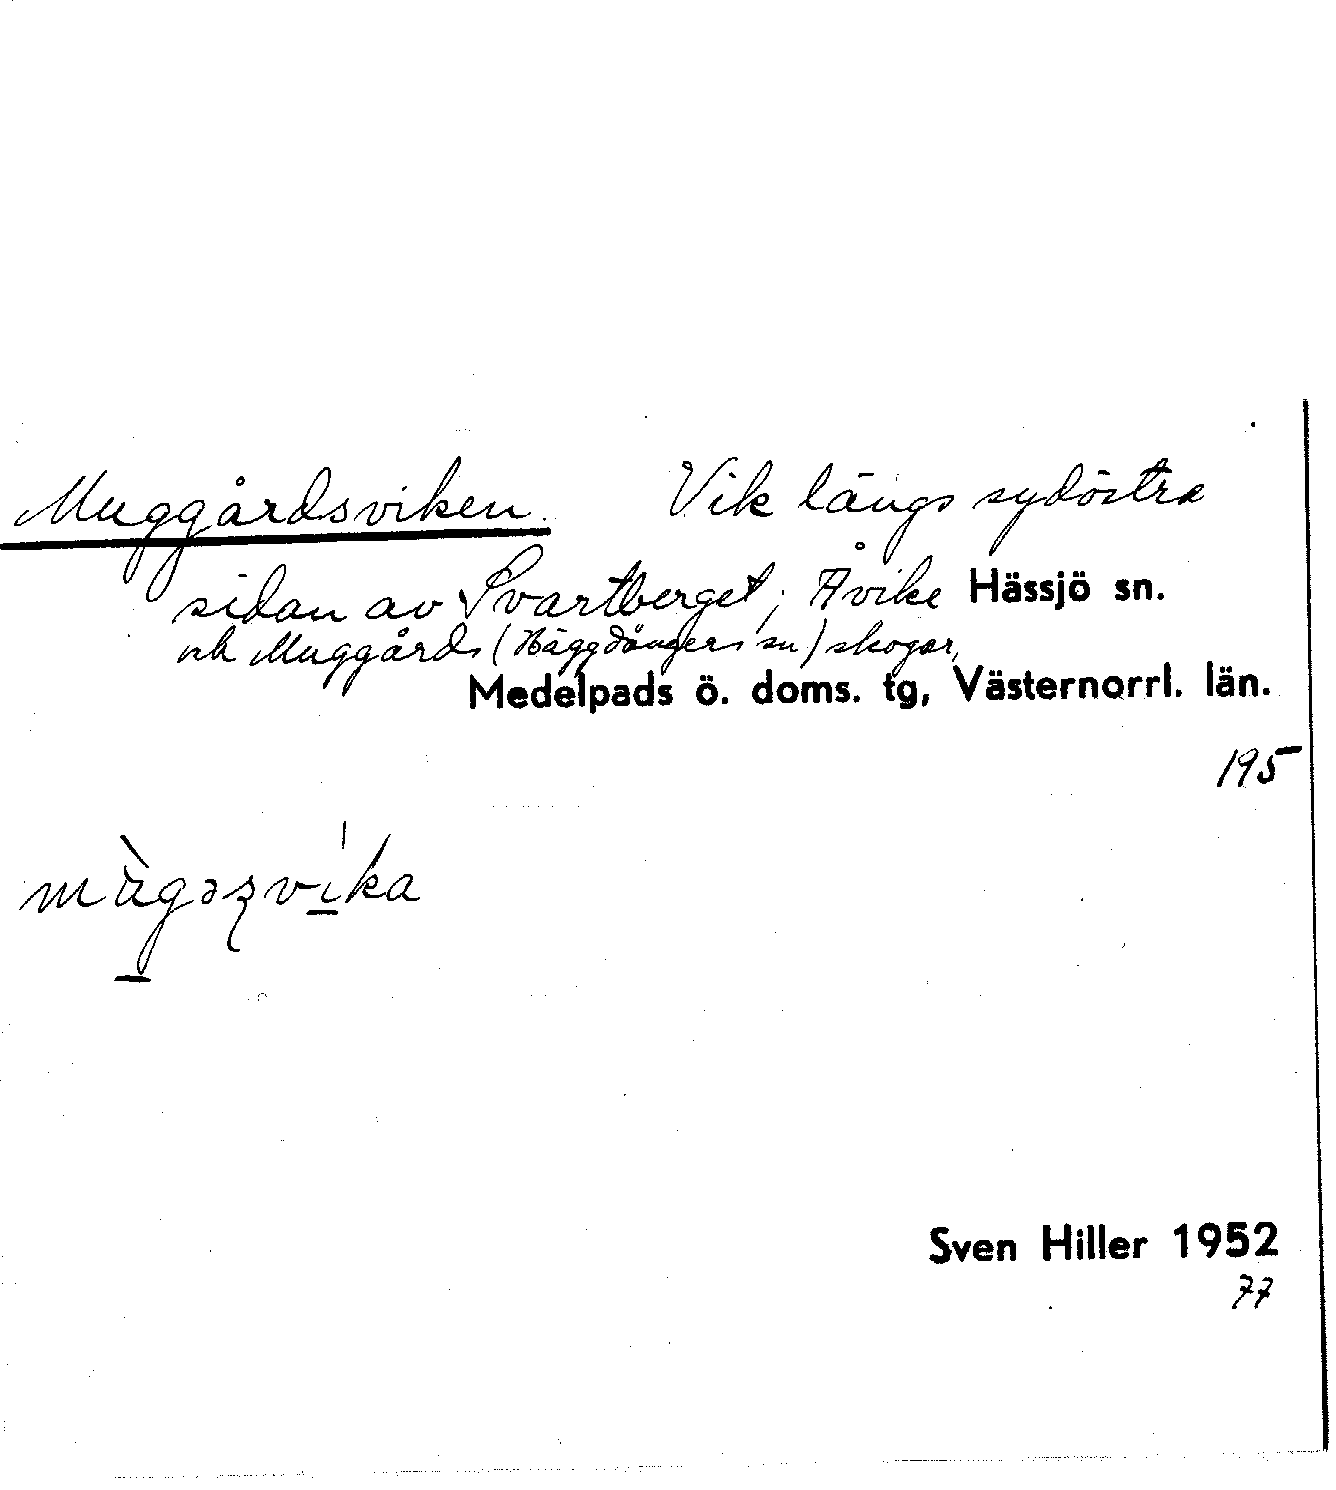 Muggårdsviken. Vik längs sydöstra
sidan av Svartberget, Åvike Hässjö sn.
och Muggårds (Häggdångers sn) skogar,
Medelpads ö. doms. tg, Västernorrl. län.
195
mùgəzvi̱ka
Sven Hiller 1952
77